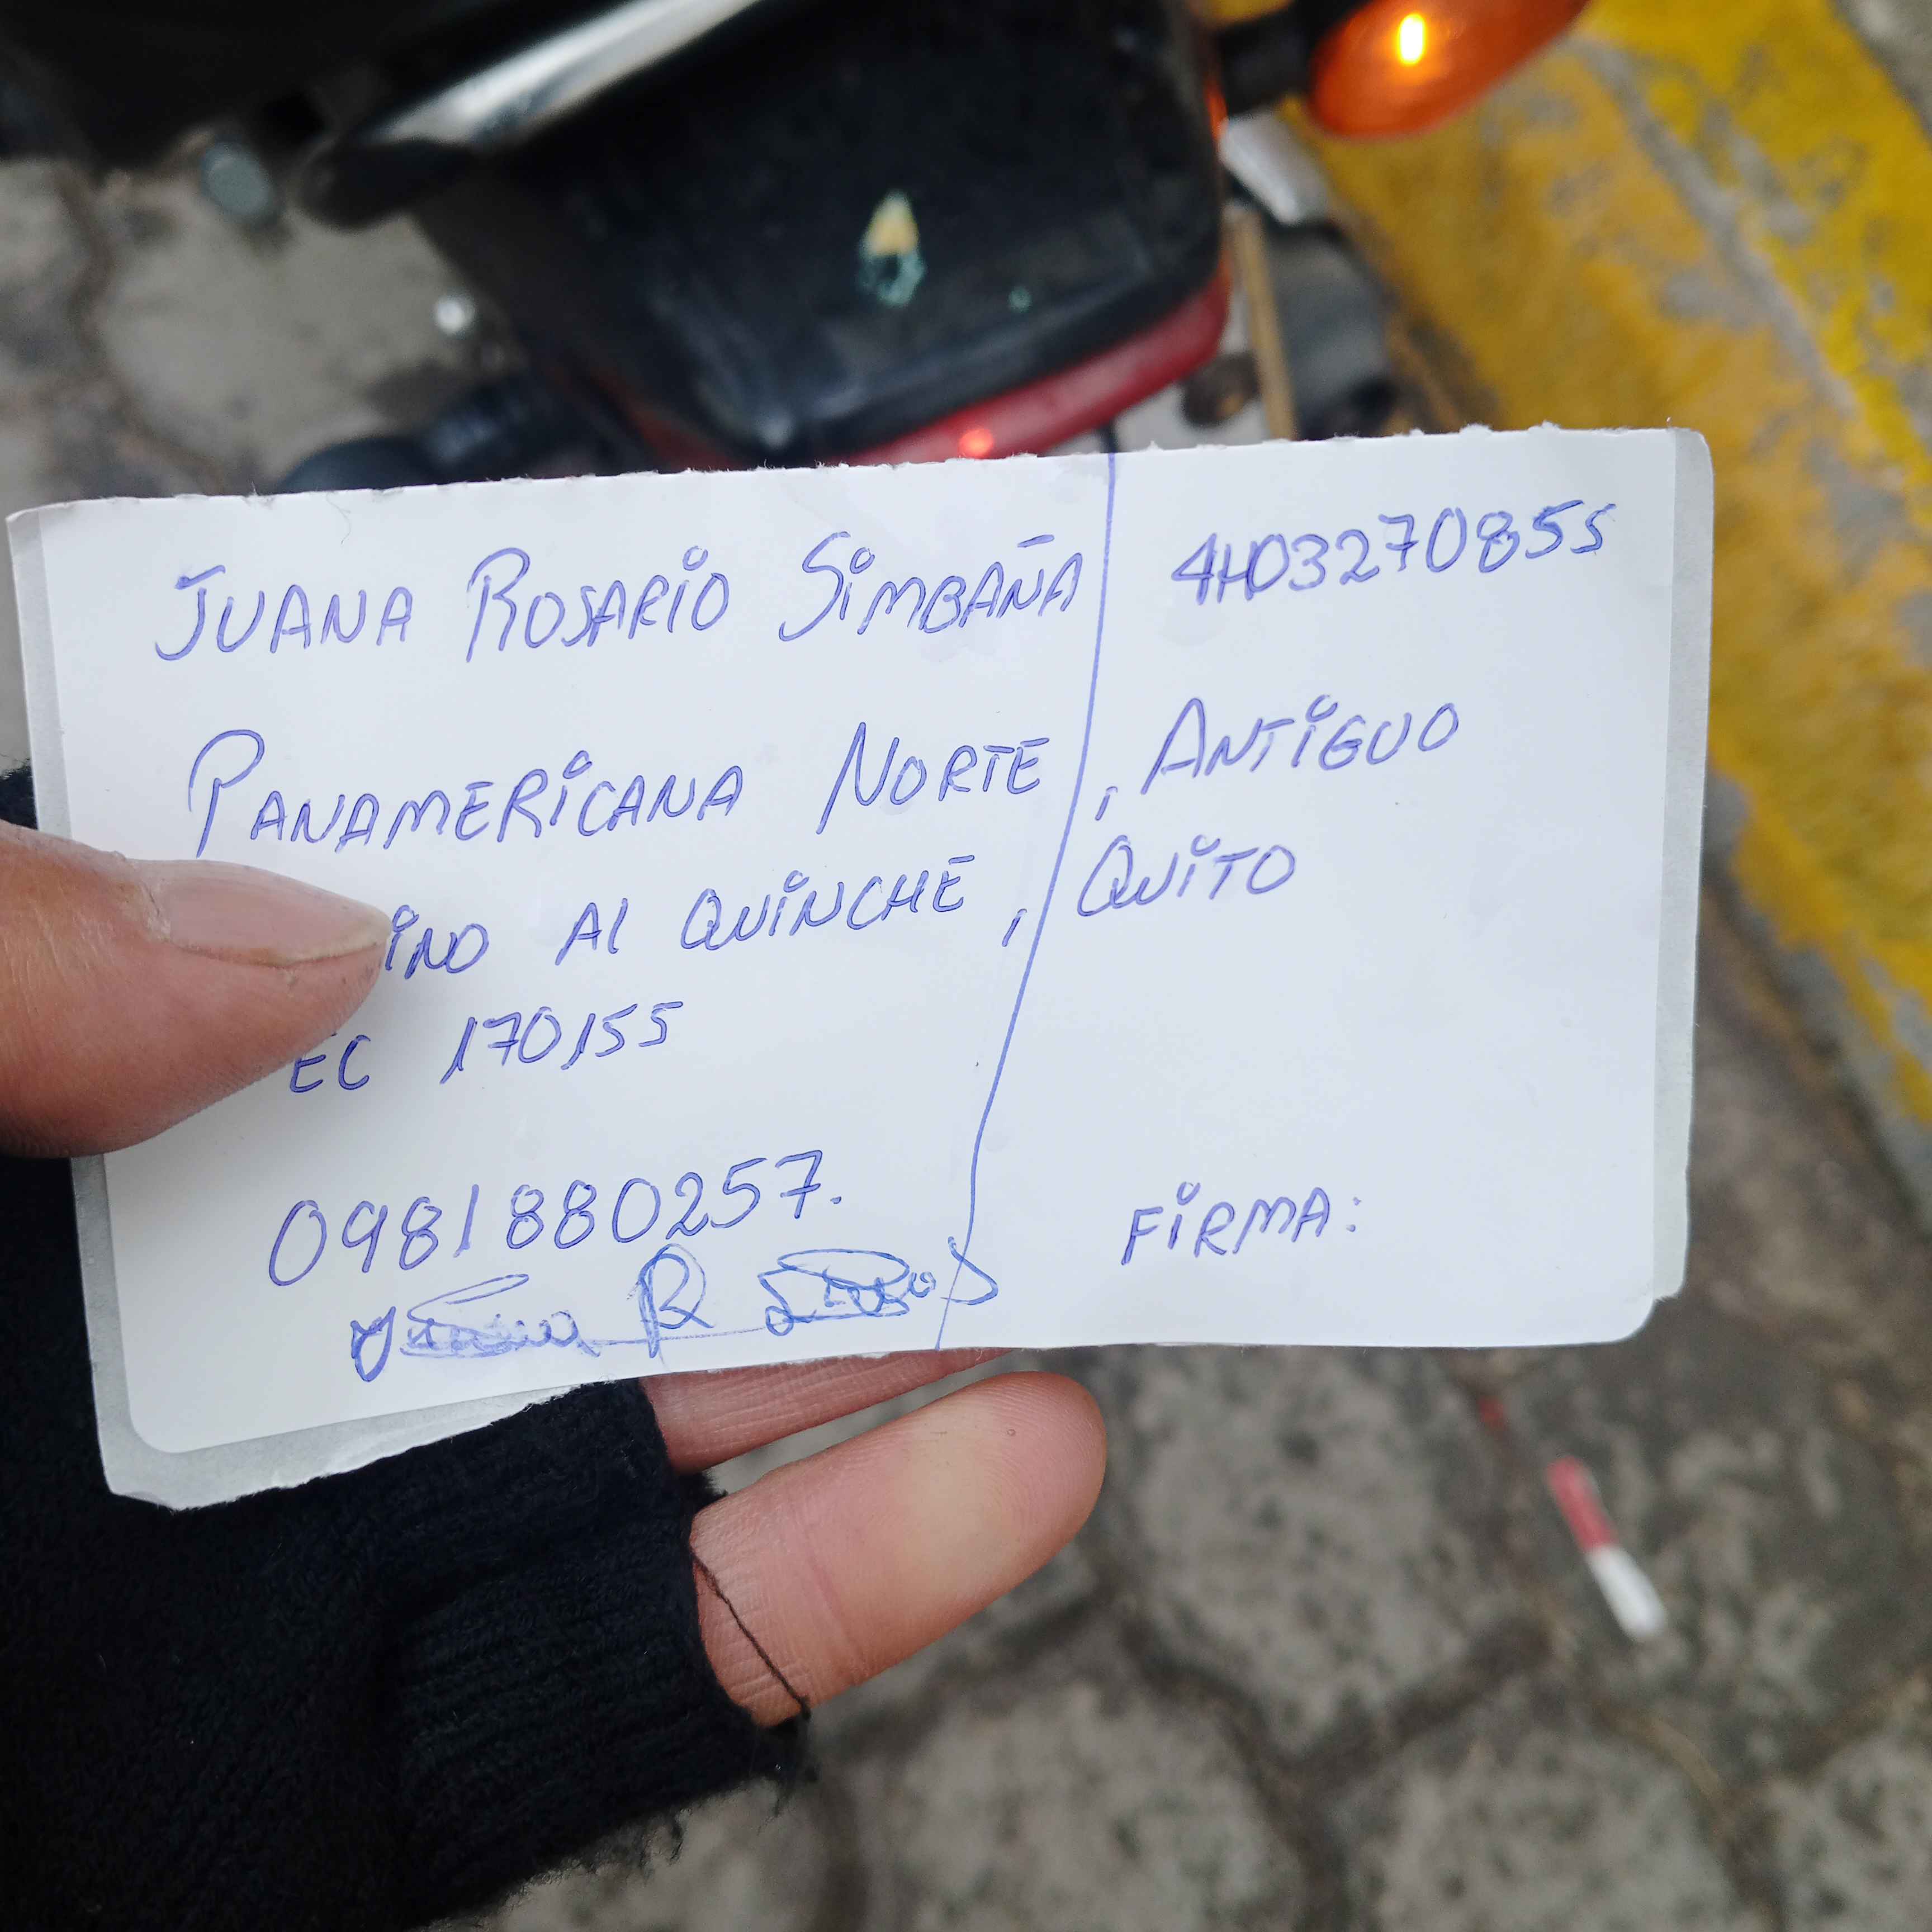 JUANA ROSARIO SIMBAÑA 4403270855
PANAMERICANA NORTE, ANTIGUO
INO Al QUINCHE, QUITO
EC 170155
0981880257.
FIRMA: